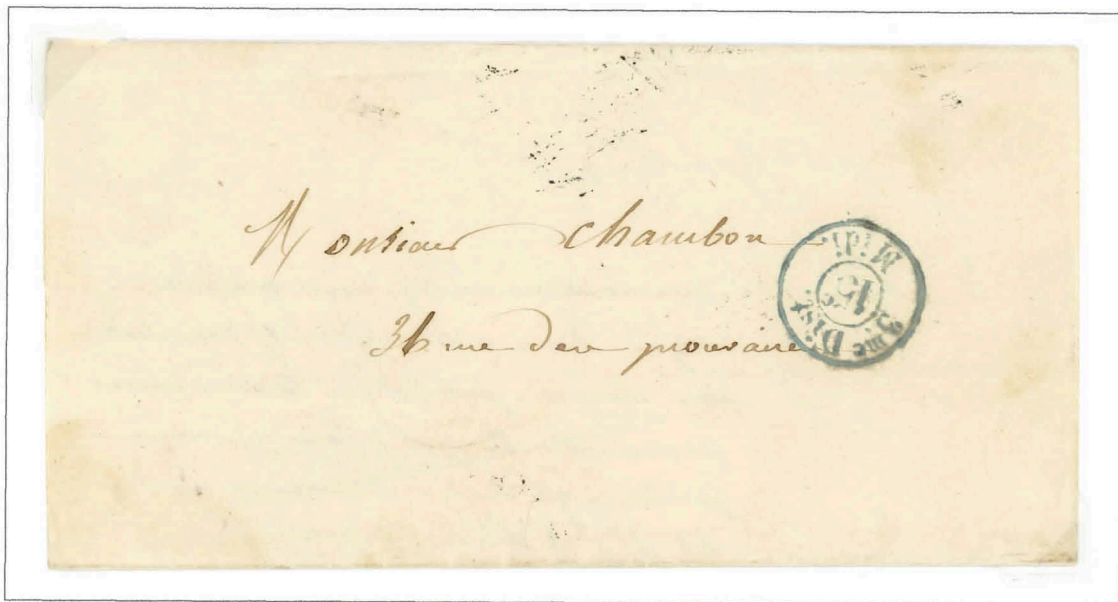 Monsieur Chambon
36 rue des prouvaires
3me Dist.
15c
Midi.